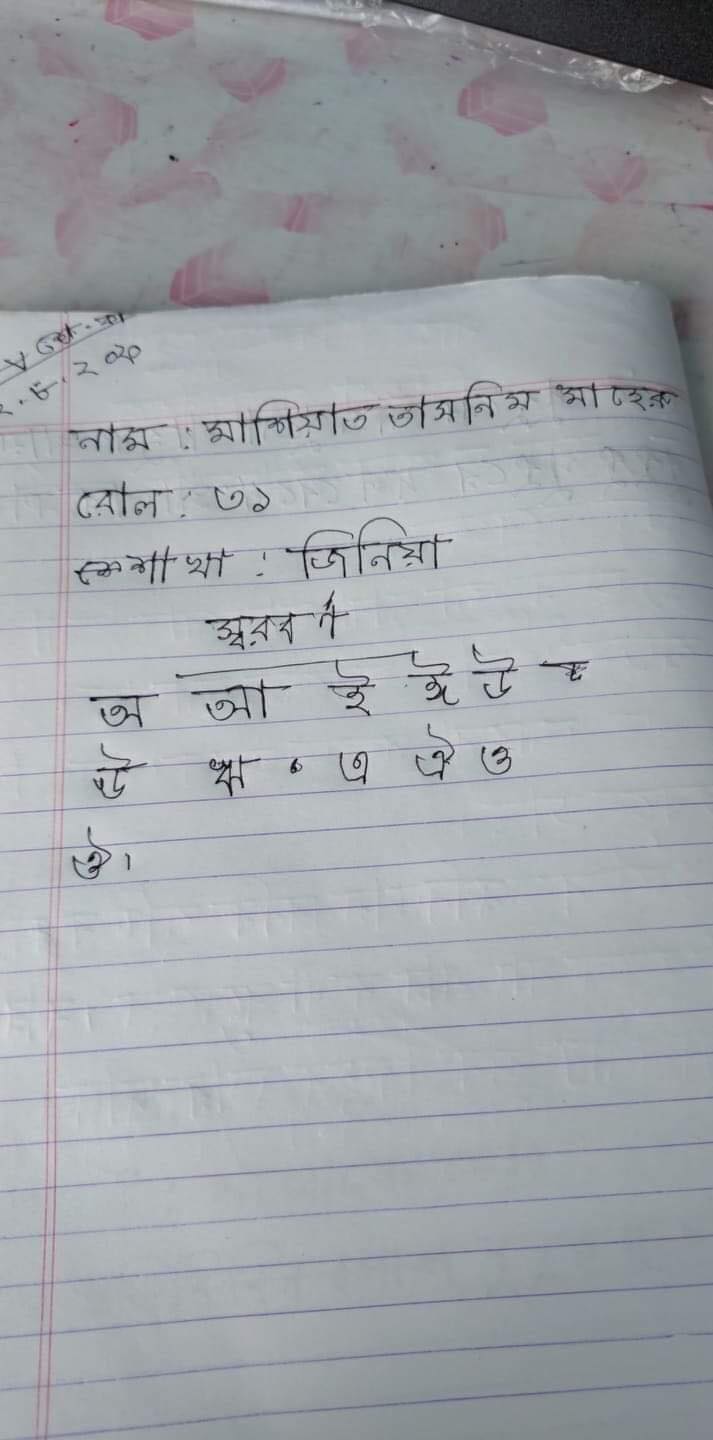 নাম : মাশিয়াত তাসনিম মাহেরু
রোল : ৩১
শাখা : জিনিয়া
স্বরবর্ণ
অ আ ই ঈ উ
ঊ ঋ . এ ঐ ও
ঔ।